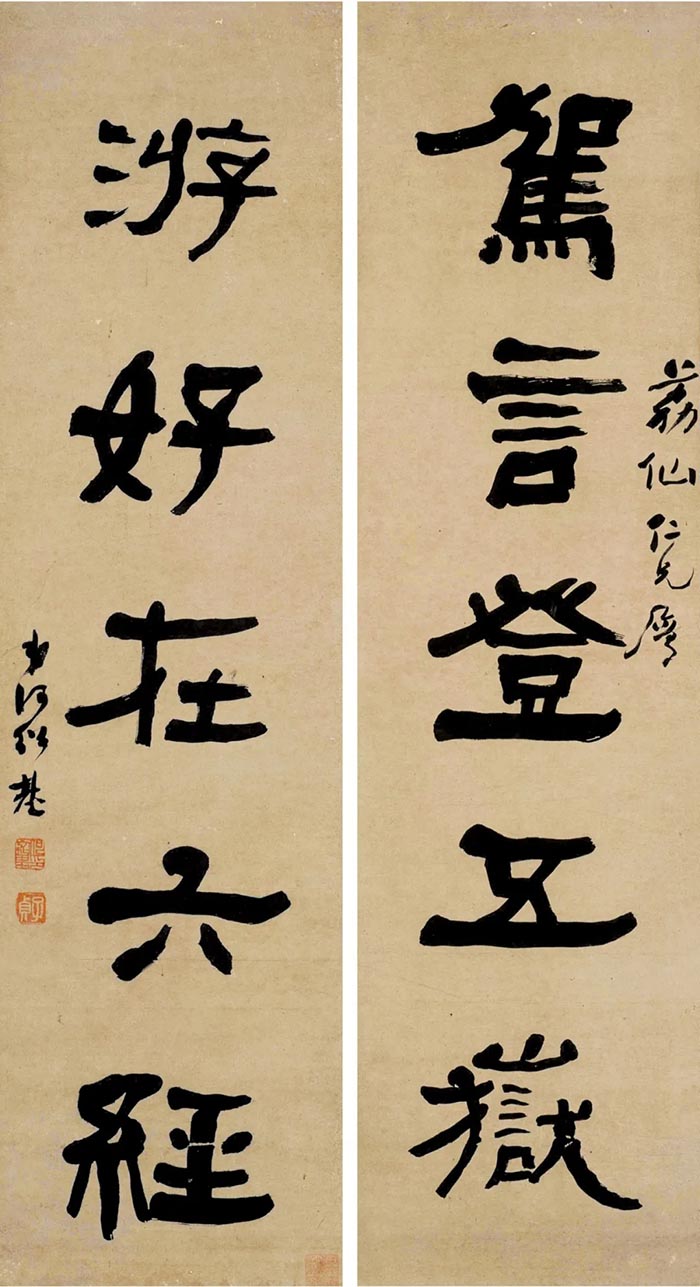 駕言登五嶽
荔仙仁兄屬
游好在六經
弟何紹基
子貞